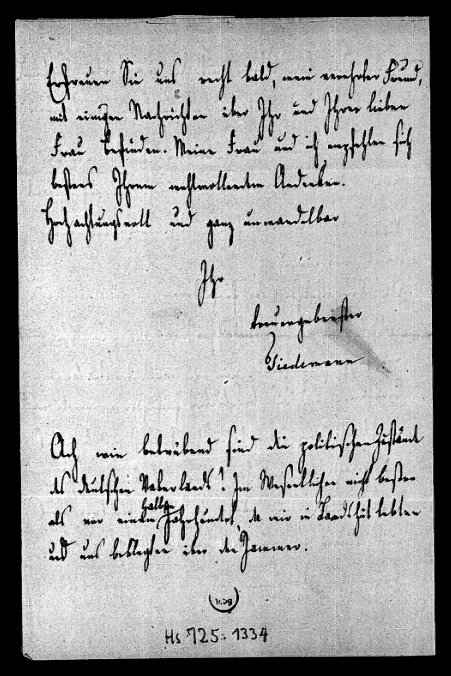 Erfreuen Sie uns recht bald, mein verehrter Freund,
mit einigen Nachrichten über Ihr und Ihrer lieben
Frau Befinden. Meine Frau und ich empfehlen sich
bestens Ihrem wohlwollenden Andenken.
Hochachtungsvoll und ganz unwandelbar
Ihr
treuergebenster
Tiedemann
Ach wie betrübend sind die politischen Zustände
des deutschen Vaterlands! Im Wesentlichen nicht besser
als vor einem halben Jahrhundert, da wir in Landshut lebten
und uns beklagten über den Jammer.
Hs 725. 1334